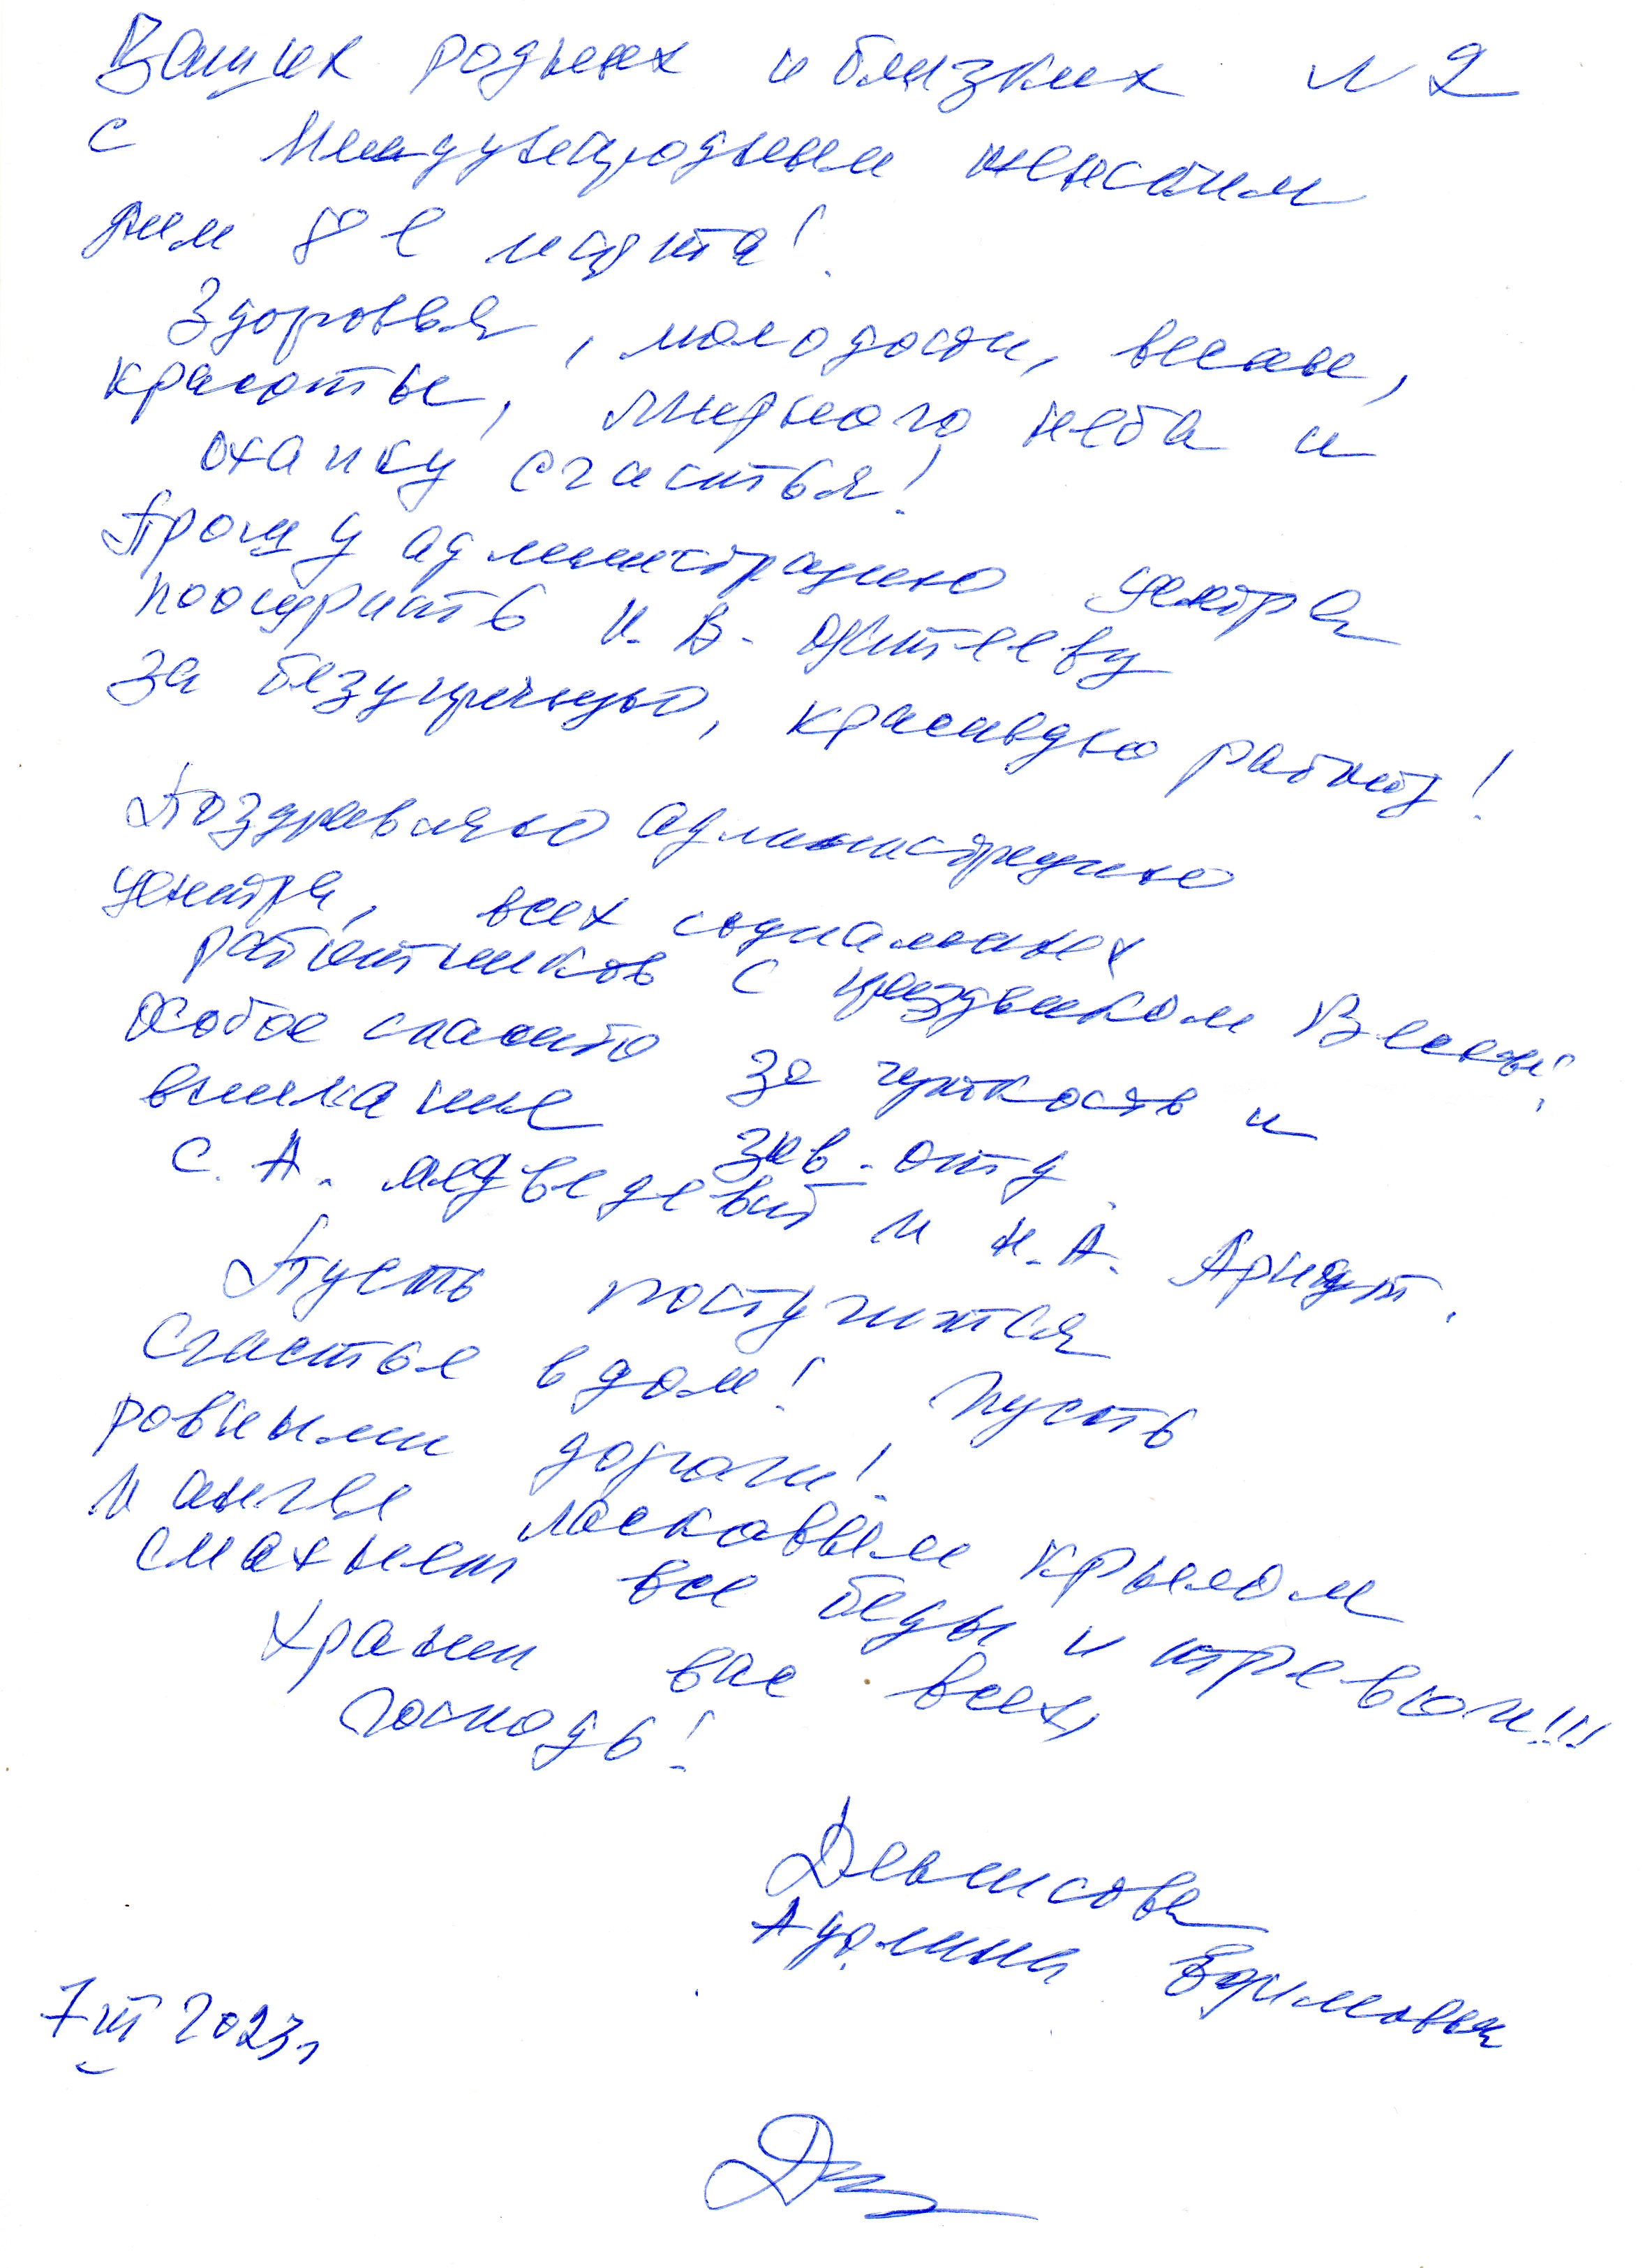 Ваших родных и близких № 2
с Международным женским
днем 8е марта!
Здоровья, молодости, весны,
красоты, мирного неба и
охапку счастья!
Прошу администрацию центра
поощрить И. В.
за безупречную, красивую работу!
Поздравляю администрацию
центра, всех социальных
работников с праздником Весны!
Особое спасибо за чуткость и
внимание зав. отд.
С. А. Медведевой и Н. А. Арндт.
Пусть постучится
счастье в дом! Пусть
ровными дороги!
И ангел ласковым крылом
смахнет все беды и тревоги!!!
Храни вас всех,
Господь!
Денисова
7 III 2023г.